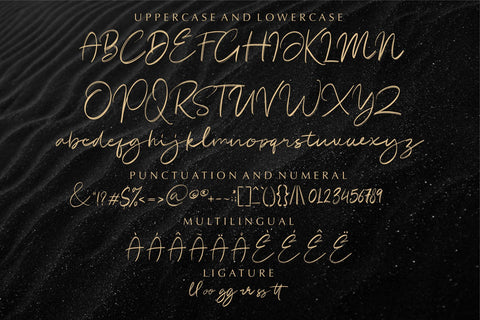 UPPERCASE AND LOWERCASE
ABCDEFGHIJKLMN
OPQRSTUVWXYZ
abcdefghijklmnopqrstuvwxyz
PUNCTUATION AND NUMERAL
&"!?#$%<=>@©®+--:[]:(){}/|\0123456789
MULTILINGUAL
ÀÁÂÃÄÅÈÉÊË
LIGATURE
ll oo gg rr ss tt